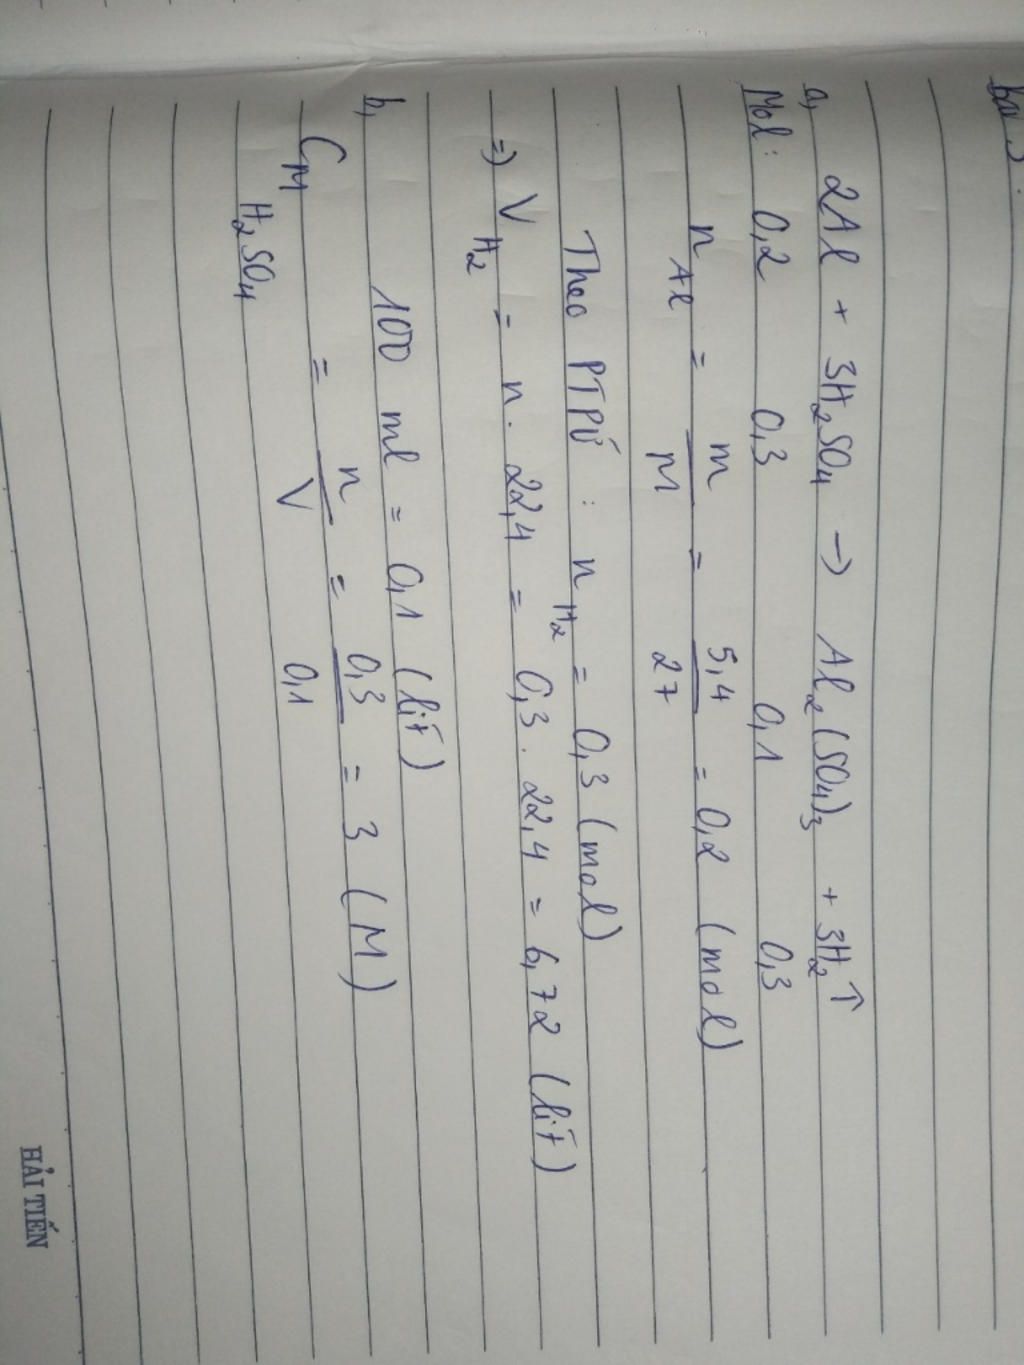 bài 3.
a, 2Al + 3H₂SO₄ → Al₂(SO₄)₃ + 3H₂↑
Mol: 0,2 0,3 0,1 0,3
n Al = m/M = 5,4/27 = 0,2 (mol)
Theo PTPƯ : n H₂ = 0,3 (mol)
=) V H₂ = n. 22,4 = 0,3. 22,4 = 6,72 (lít)
b, 100 ml = 0,1 (lít)
C M H₂SO₄ = n/V = 0,3/0,1 = 3 (M)
HẢI TIẾN